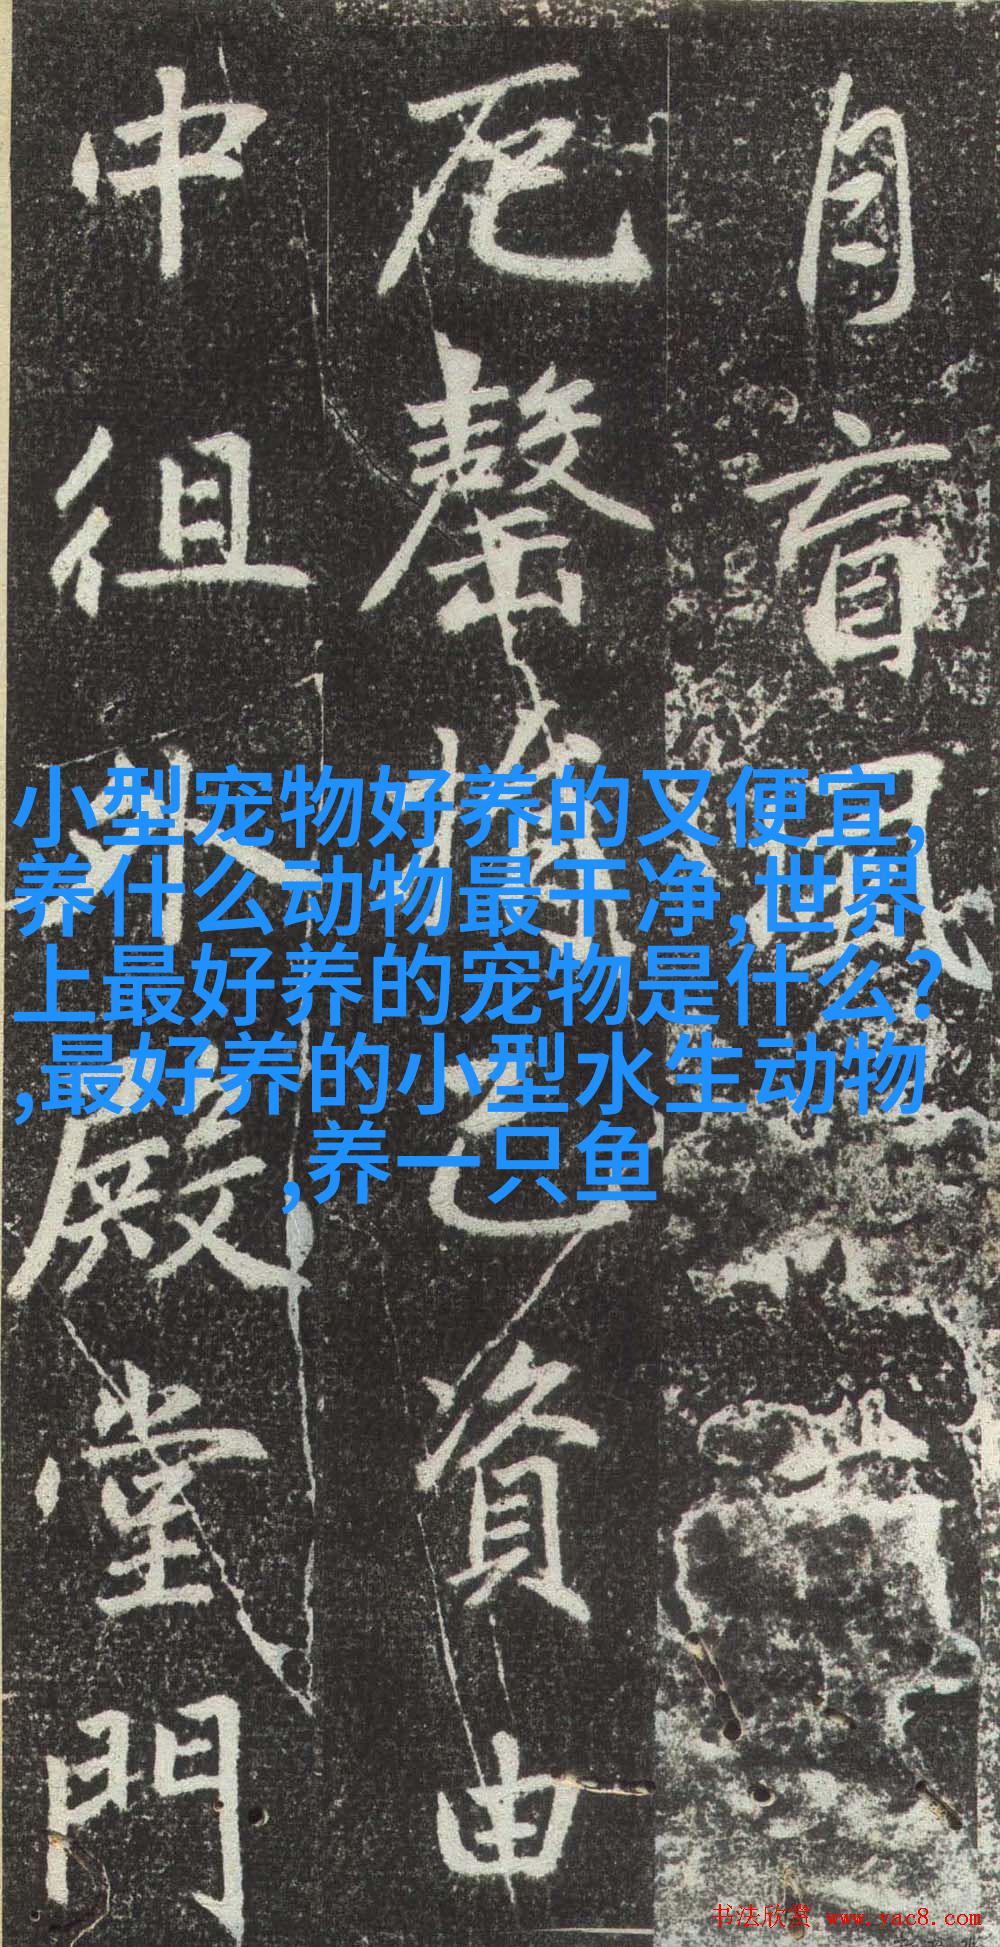 自盲風
卮罄
資由
中徂
殿堂門
小型宠物好养的又便宜,
养什么动物最干净,世界
上最好养的宠物是什么?
,最好养的小型水生动物
,养一只鱼
书法欣赏 www.yac8.com